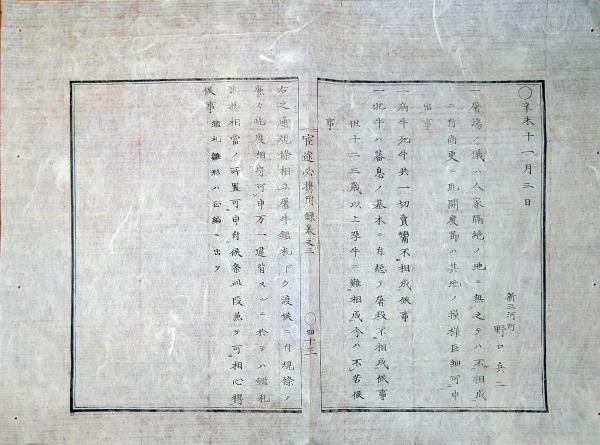 ○辛未十一月三日
新三河町
野口兵二
一屠場ノ儀ハ人家隔絶ノ地ニ無之テハ不相成
ニ付尚更ニ取開度節ハ其地ノ模様巨細可申
出事
一病牛死牛共一切賣鬻不相成候事
一牝牛ハ蕃息ノ基本ニ付殺屠不相成候事
但十二三歳以上孕牛ニ難相成分ハ不苦候
事
宦途必携附録巻之三
○四十三
右之通規條相立屠牛鑑札下ケ渡候ニ付規條ノ
廉々屹度相守可申万一違背スルニ於テハ鑑札
取揚相當ノ所置可申付候条此段兼テ可相心得
候事
鑑札雛形ハ正編ニ出ツ